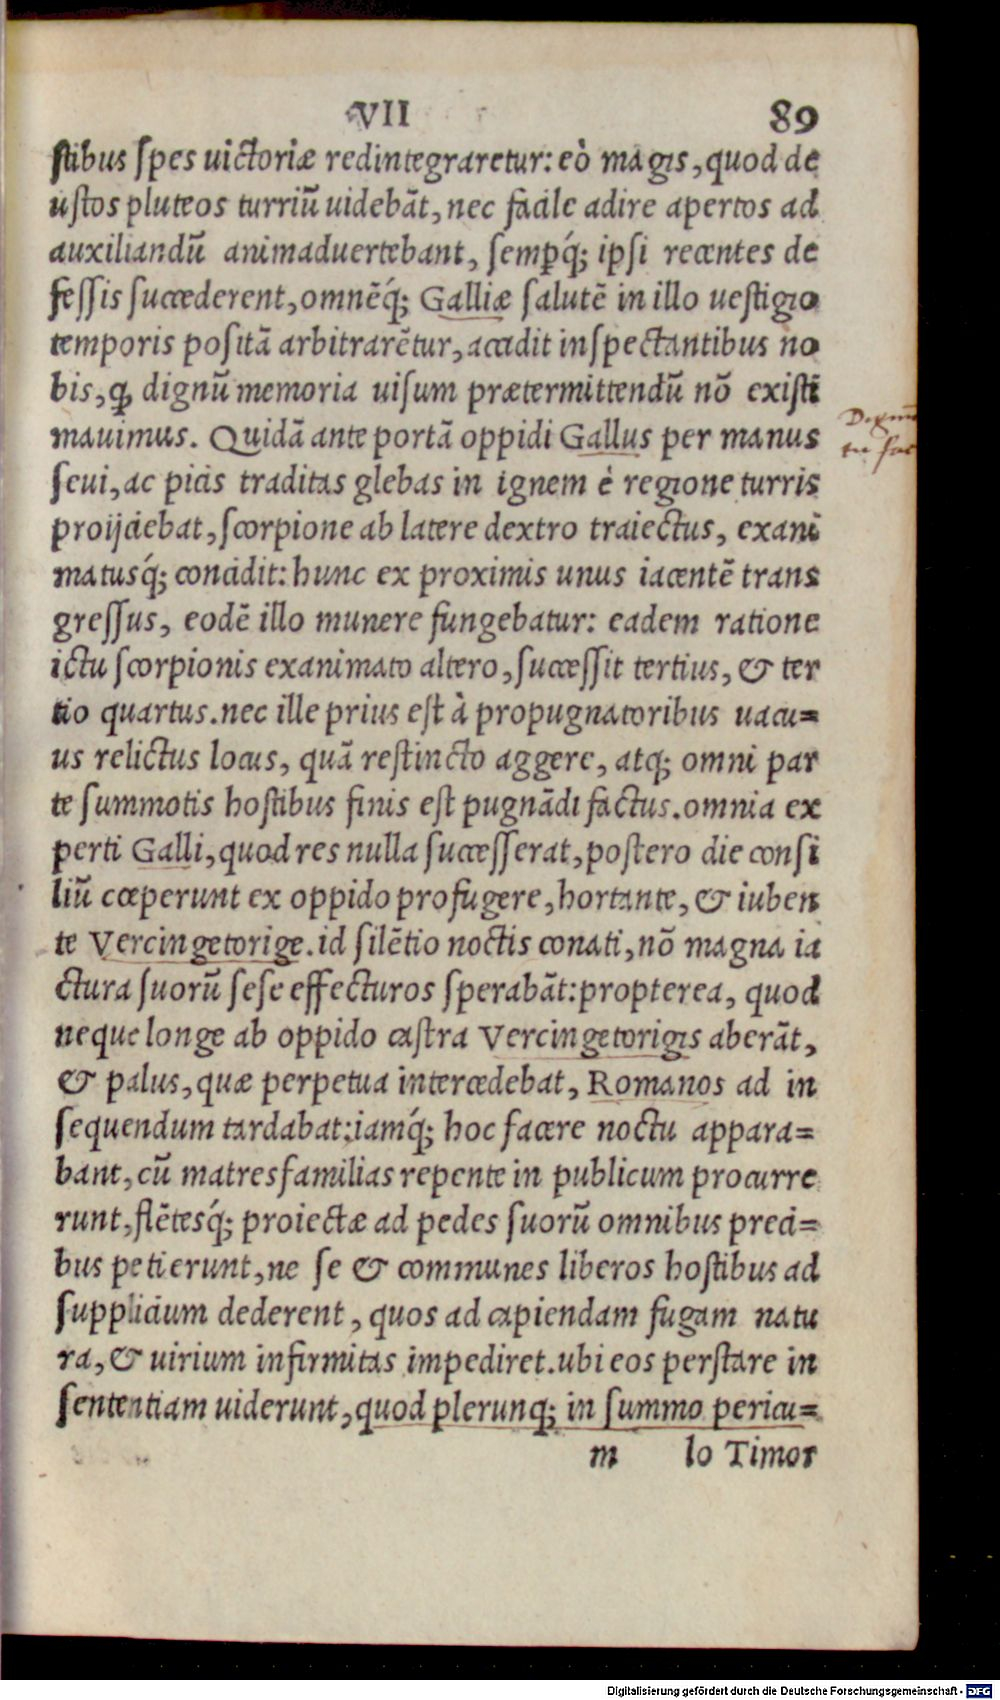 VII 89
stibus spes uictoriæ redintegraretur: eò magis, quod de
ustos pluteos turriũ uidebãt, nec facile adire apertos ad
auxiliandũ animaduertebant, semp̱q́; ipsi recentes de
fessis succederent, omnẽq́; Galliæ salutẽ in illo uestigio
temporis positã arbitrarẽtur, accidit inspectantibus no
bis, ꝙ dignũ memoria uisum prætermittendũ nõ existi
mauimus. Quidã ante portã oppidi Gallus per manus
seui, ac picis traditas glebas in ignem è regione turris
proijciebat, scorpione ab latere dextro traiectus, exani
matusq́; concidit: hunc ex proximis unus iacentẽ trans
gressus, eodẽ illo munere fungebatur: eadem ratione
ictu scorpionis exanimato altero, successit tertius, & ter
tio quartus. nec ille prius est à propugnatoribus uacu=
us relictus locus, quã restincto aggere, atq; omni par
te summotis hostibus finis est pugnãdi factus. omnia ex
perti Galli, quod res nulla successerat, postero die consi
liũ cœperunt ex oppido profugere, hortante, & iuben
te Vercingetorige. id silẽtio noctis conati, nõ magna ia
ctura suorũ sese effecturos sperabãt: propterea, quod
neque longe ab oppido castra Vercingetorigis aberãt,
& palus, quæ perpetua intercedebat, Romanos ad in
sequendum tardabat: iamq́; hoc facere noctu appara=
bant, cũ matresfamilias repente in publicum procurre
runt, flẽtesq́; proiectæ ad pedes suorũ omnibus preci=
bus petierunt, ne se & communes liberos hostibus ad
supplicium dederent, quos ad capiendam fugam natu
ra, & uirium infirmitas impediret. ubi eos perstare in
sententiam uiderunt, quod plerunq; in summo pericu=
m lo Timor
Digitalisierung gefördert durch die Deutsche Forschungsgemeinschaft - DFG